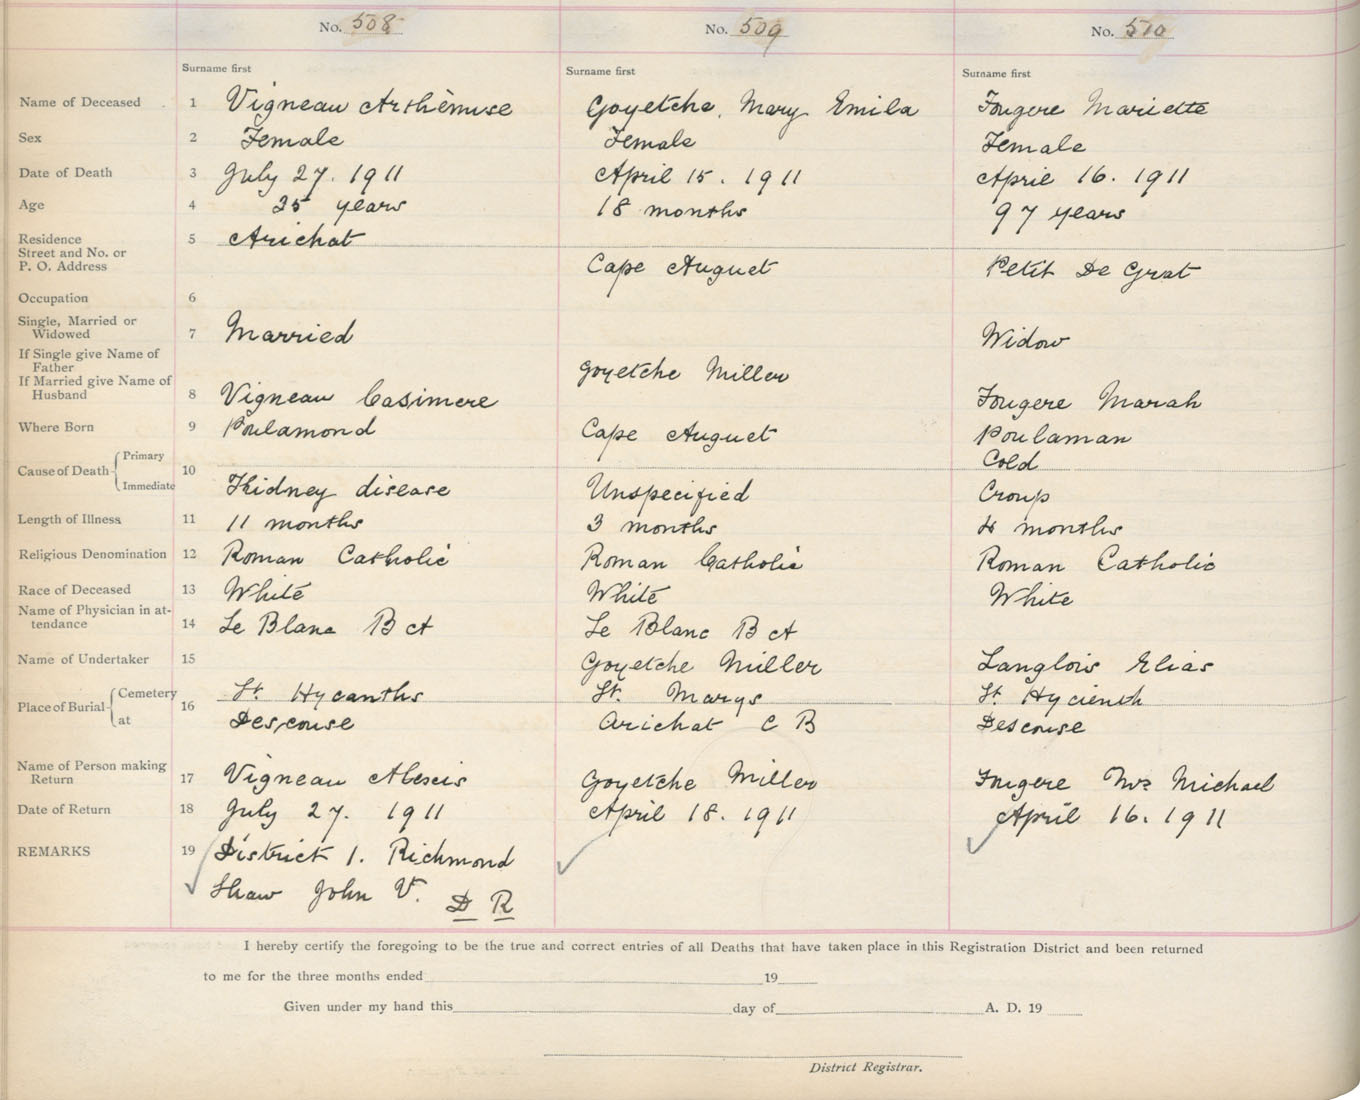 No. 508 No. 509 No. 510
Surname first Surname first Surname first
Name of Deceased 1 Vigneau Arthèmise Goyetche, Mary Emila Fougere Mariette
Sex 2 Female Female Female
Date of Death 3 July 27. 1911 April 15. 1911 April 16. 1911
Age 4 35 years 18 months 97 years
Residence 5 Arichat
Street and No. or
P. O. Address Cape Auguet Petit De Grat
Occupation 6
Single, Married or
Widowed 7 Married Widow
If Single give Name of
Father Goyetche Miller
If Married give Name of
Husband 8 Vigneau Casimere Fougere Marah
Where Born 9 Poulamond Cape Auguet Poulaman
Cause of Death Primary 10 Cold
Immediate Kidney disease Unspecified Croup
Length of Illness 11 11 months 3 months 4 months
Religious Denomination 12 Roman Catholic Roman Catholic Roman Catholic
Race of Deceased 13 White White White
Name of Physician in at-
tendance 14 Le Blanc B A Le Blanc B A
Name of Undertaker 15 Goyetche Miller Langlois Elias
Place of Burial Cemetery 16 St. Hycanths St. Marys St. Hycienth
at Descouse Arichat C B Descouse
Name of Person making
Return 17 Vigneau Alexis Goyetche Miller Fougere Mrs Michael
Date of Return 18 July 27. 1911 April 18. 1911 April 16. 1911
REMARKS 19 District 1. Richmond
Shaw John V. D R
I hereby certify the foregoing to be the true and correct entries of all Deaths that have taken place in this Registration District and been returned
to me for the three months ended 19
Given under my hand this day of A. D. 19
District Registrar.